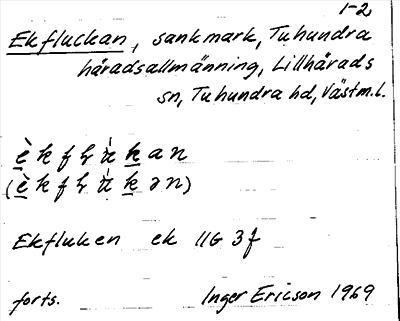 1-2
Ekfluckan, sankmark, Tuhundra
häradsallmänning, Lillhärads
sn, Tuhundra hd, Västm.l.
Ekfluken ek 11G 3f
forts. Inger Ericson 1969